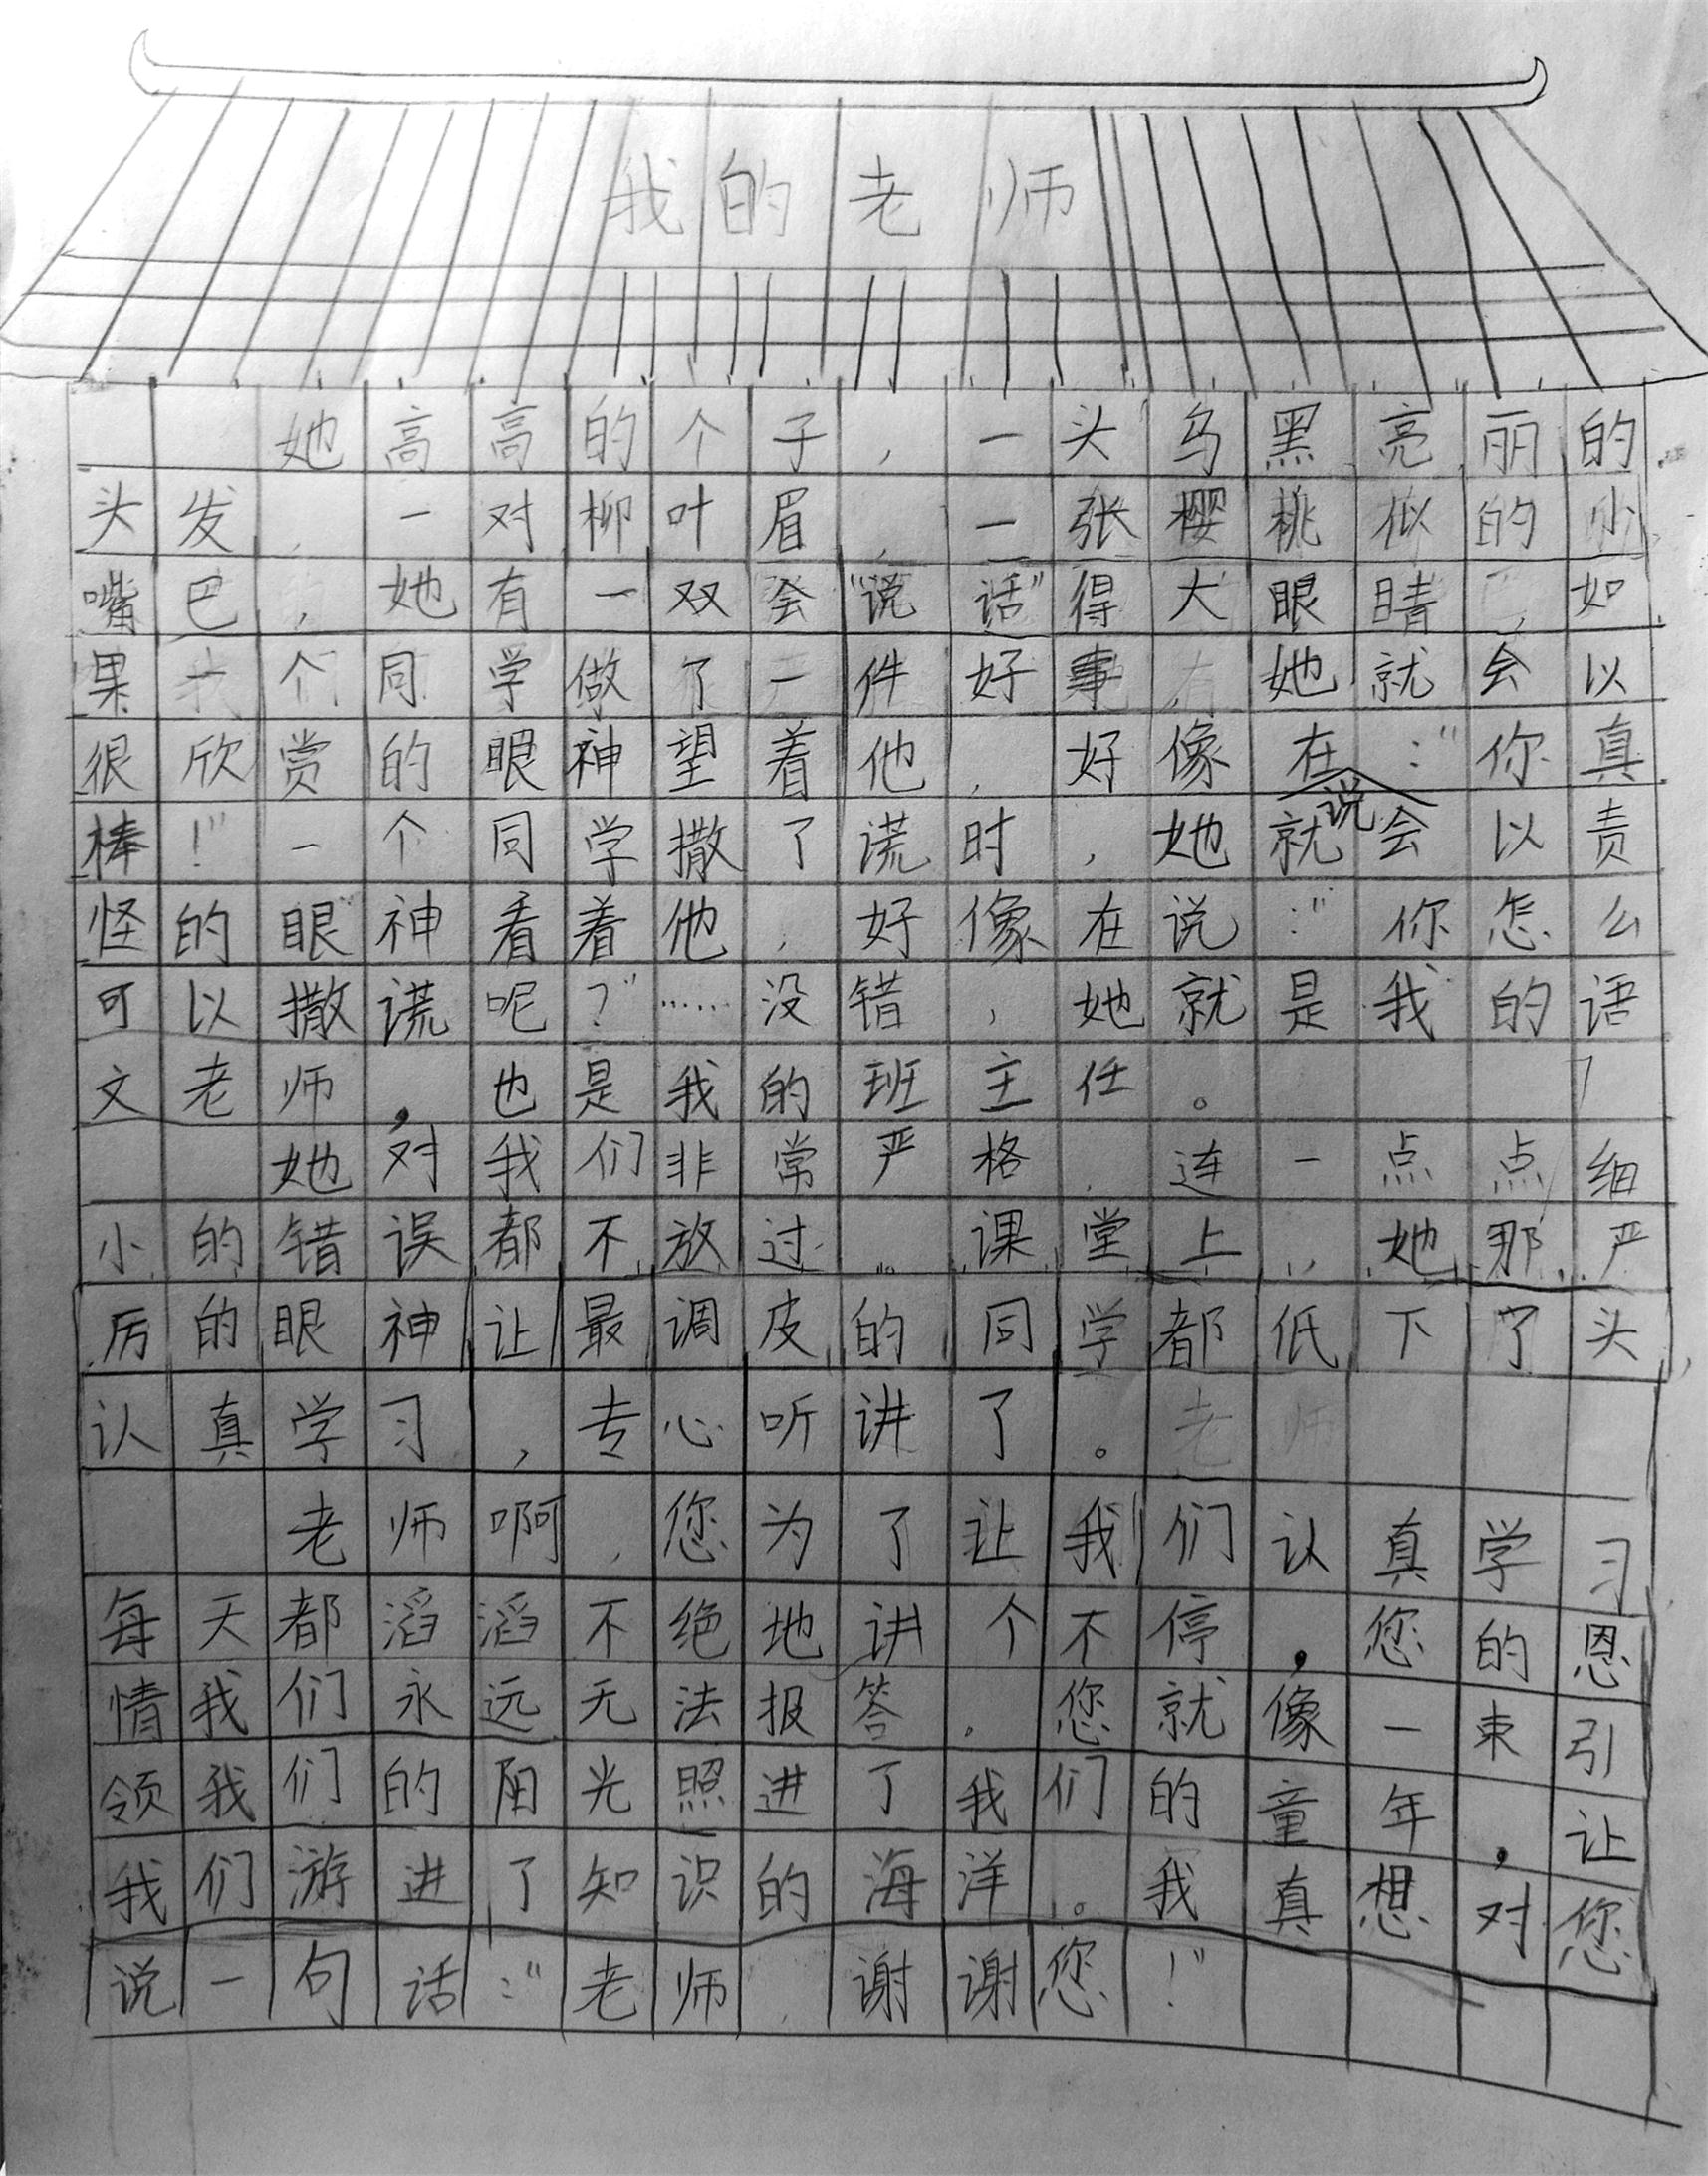 我的老师
她高高的个子，一头乌黑亮丽的
头发，一对柳叶眉，一张樱桃似的小
嘴巴，她有一双会“说话”得大眼睛，如
果一个同学做了一件好事，她就会以
很欣赏的眼神望着他，好像在说：“你真
棒！”一个同学撒了谎时，她就会以责
怪的眼神看着他，好像在说：“你怎么
可以撒谎呢？”……没错，她就是我的语
文老师，也是我的班主任。
她对我们非常严格，连一点点细
小的错误都不放过。课堂上，她那严
厉的眼神让最调皮的同学都低下了头，
认真学习，专心听讲了。
老师啊，您为了让我们认真学习
每天都滔滔不绝地讲个不停，您的恩
情我们永远无法报答。您就像一束引
领我们的阳光照进了我们的童年，让
我们游进了知识的海洋。我真想对您
说一句话：“老师，谢谢您！”